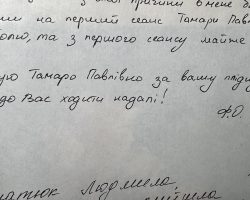 причини в мене б
на перший сеанс Тамари Пав
та з першого сеансу майже
Тамаро Павлівно за вашу підт
до Вас ходити надалі!
Ф.О.
Людмила